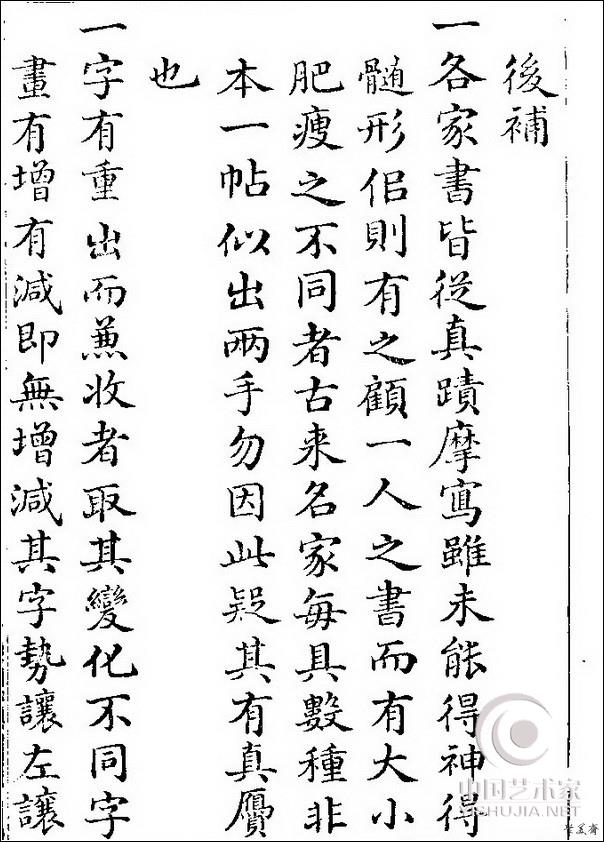 後補
一各家書皆從真蹟摩寫雖未能得神得
髓形佀則有之顧一人之書而有大小
肥瘦之不同者古来名家每具數種非
本一帖似出兩手勿因此疑其有真贗
也
一字有重出而兼收者取其變化不同字
畫有增有減即無增減其字勢讓左讓
中国艺术家
YISHUJIA.NET